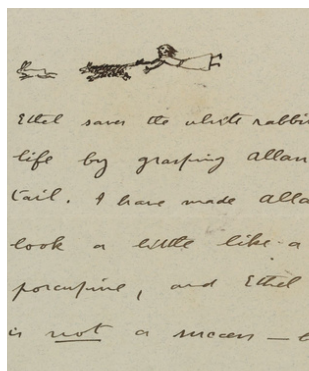 Ethel saves the white rabbit
life by grasping Allan
tail. I have made Alla
look a little like a
porcupine, and Ethel
is not a success —